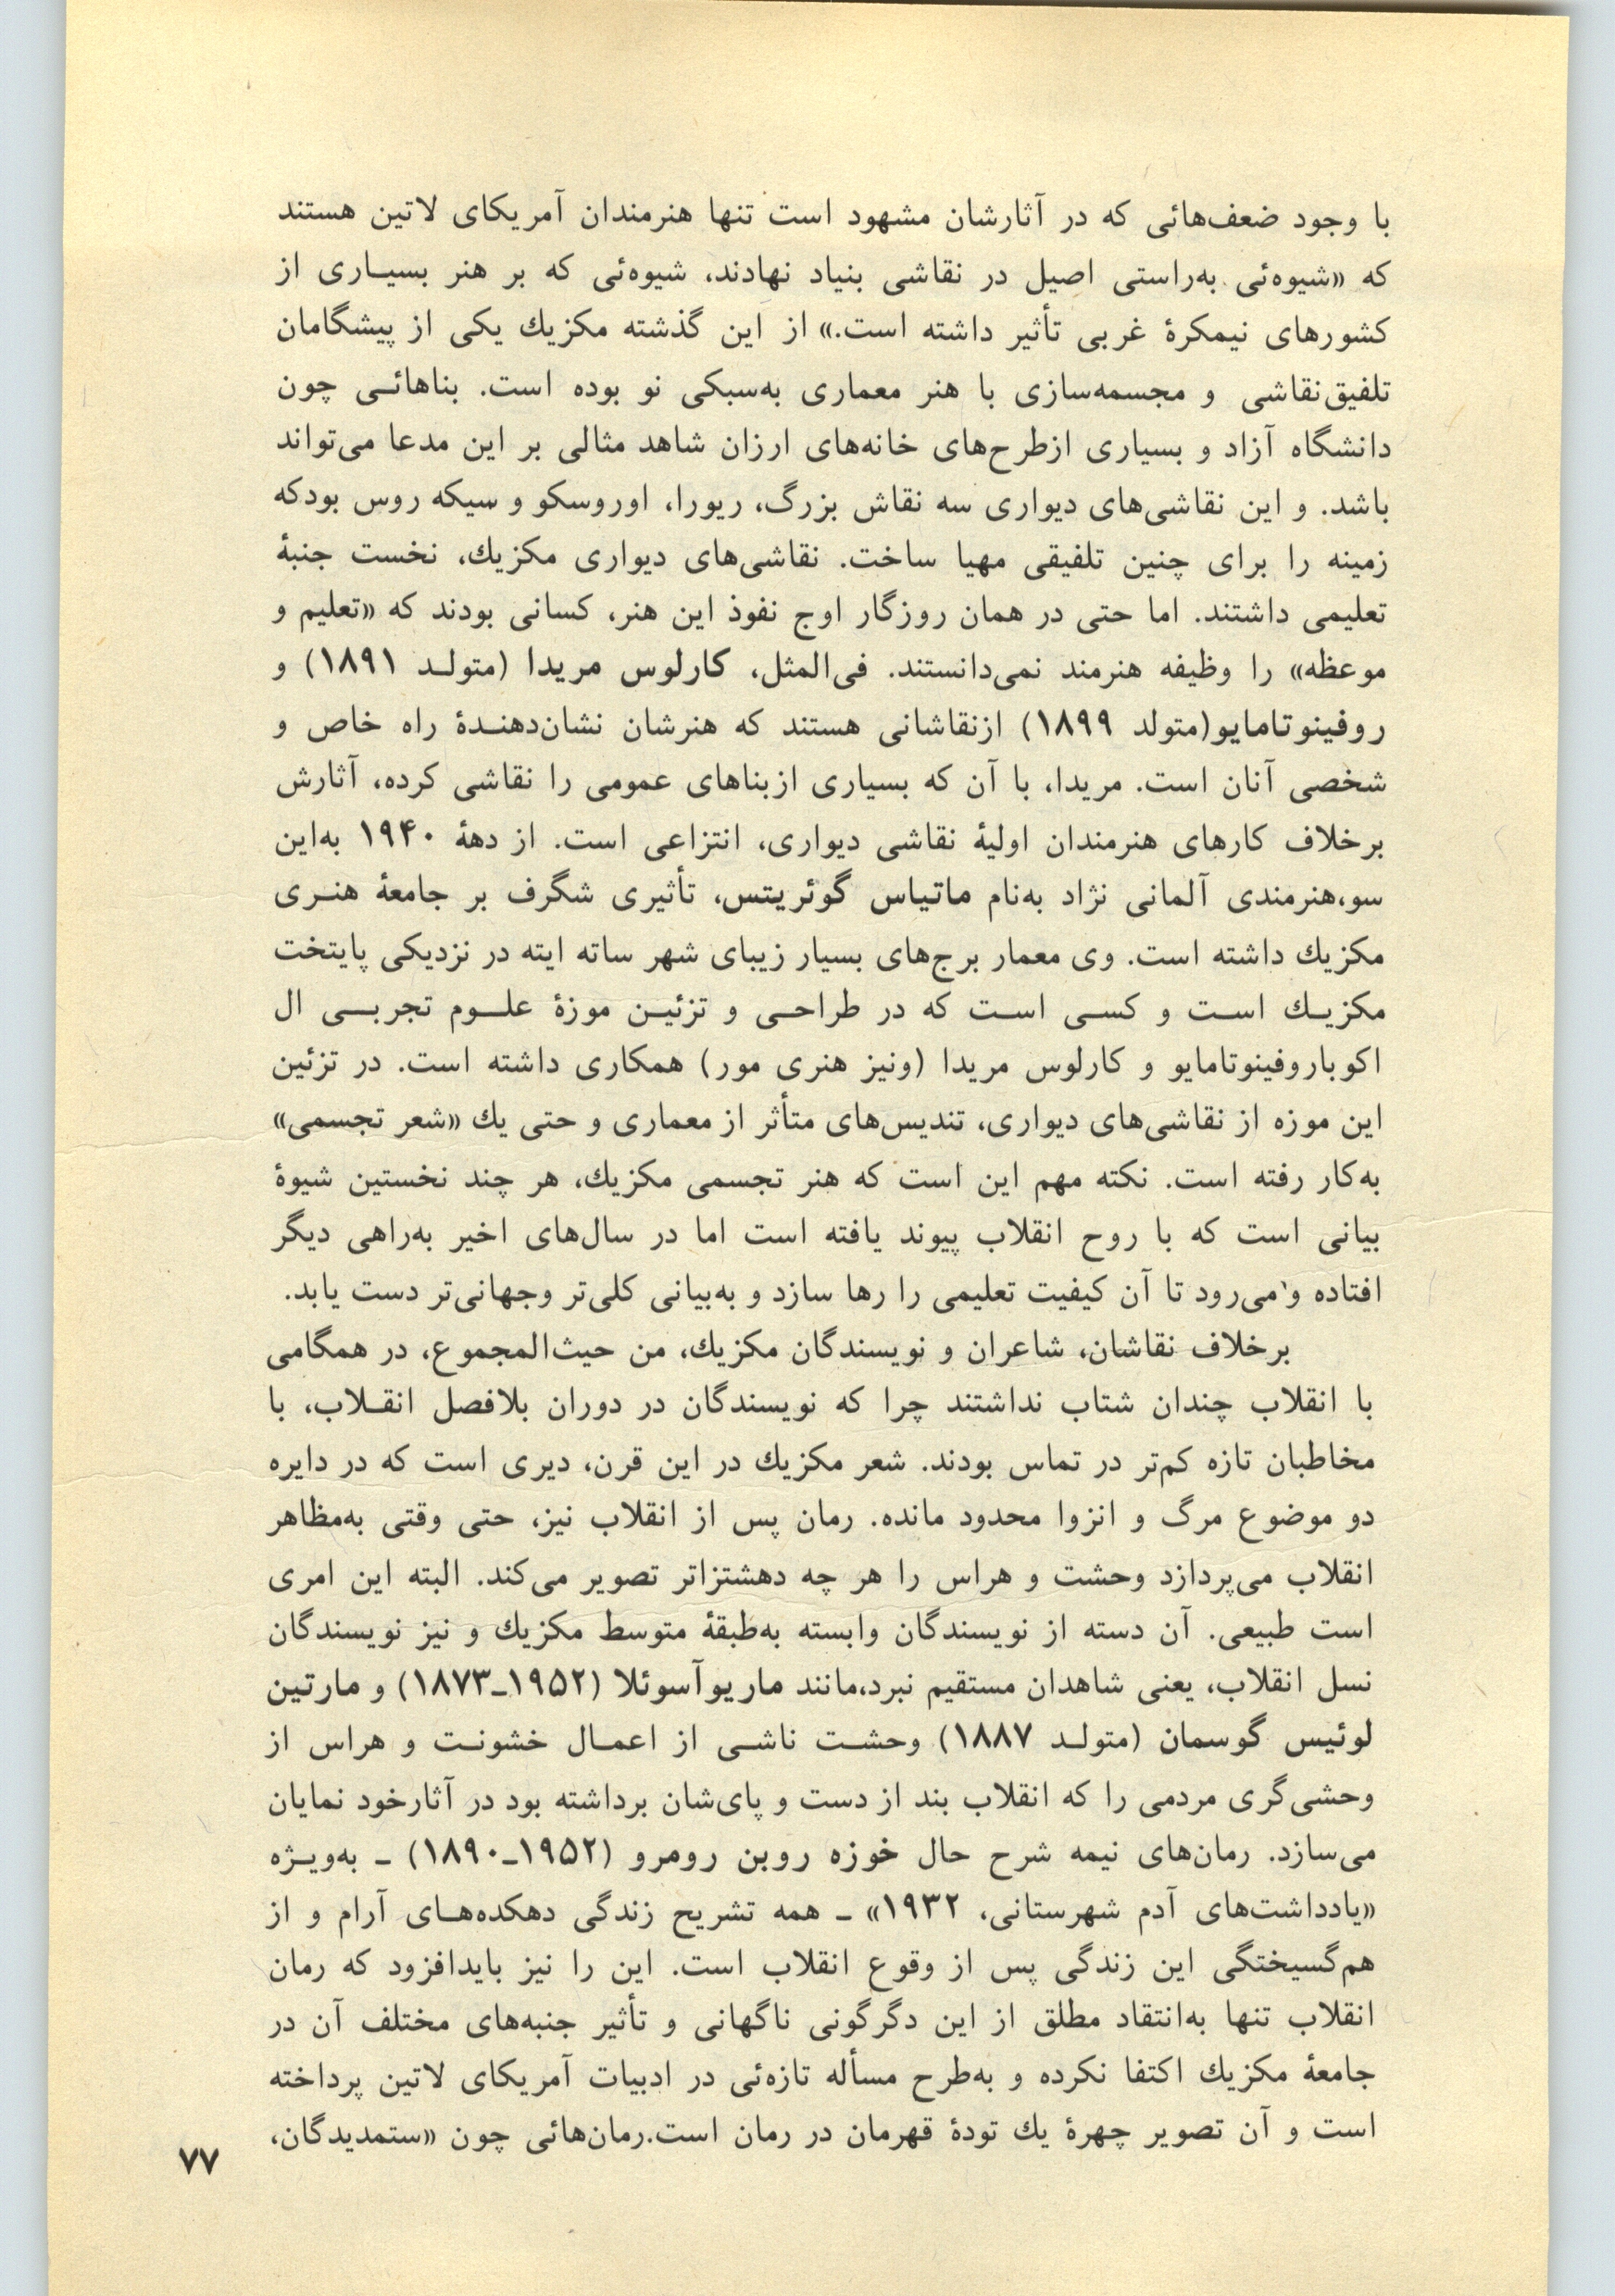 با وجود ضعف‌هائی که در آثارشان مشهود است تنها هنرمندان آمریکای لاتین هستند
که «شیوه‌ئی به‌راستی اصیل در نقاشی بنیاد نهادند، شیوه‌ئی که بر هنر بسیـاری از
کشورهای نیمکرهٔ غربی تأثیر داشته است.» از این گذشته مکزیك یکی از پیشگامان
تلفیق‌نقاشی و مجسمه‌سازی با هنر معماری به‌سبکی نو بوده است. بناهائـی چون
دانشگاه آزاد و بسیاری ازطرح‌های خانه‌های ارزان شاهد مثالی بر این مدعا می‌تواند
باشد. و این نقاشی‌های دیواری سه نقاش بزرگ، ریورا، اوروسکو و سیکه روس بودکه
زمینه را برای چنین تلفیقی مهیا ساخت. نقاشی‌های دیواری مکزیك، نخست جنبهٔ
تعلیمی داشتند. اما حتی در همان روزگار اوج نفوذ این هنر، کسانی بودند که «تعلیم و
موعظه» را وظیفه هنرمند نمی‌دانستند. فی‌المثل، کارلوس مریدا (متولـد ۱۸۹۱) و
روفینوتامایو(متولد ۱۸۹۹) ازنقاشانی هستند که هنرشان نشان‌دهنـدهٔ راه خاص و
شخصی آنان است. مریدا، با آن که بسیاری ازبناهای عمومی را نقاشی کرده، آثارش
برخلاف کارهای هنرمندان اولیهٔ نقاشی دیواری، انتزاعی است. از دههٔ ۱۹۴۰ به‌این
سو،هنرمندی آلمانی نژاد به‌نام ماتیاس گوئریتس، تأثیری شگرف بر جامعهٔ هنـری
مکزیك داشته است. وی معمار برج‌های بسیار زیبای شهر ساته ایته در نزدیکی پایتخت
مکزیـك اسـت و کسـی اسـت که در طراحـی و تزئیـن موزهٔ علـوم تجربـی ال
اکوباروفینوتامایو و کارلوس مریدا (ونیز هنری مور) همکاری داشته است. در تزئین
این موزه از نقاشی‌های دیواری، تندیس‌های متأثر از معماری و حتی یك «شعر تجسمی»
به‌کار رفته است. نکته مهم این است که هنر تجسمی مکزیك، هر چند نخستین شیوهٔ
بیانی است که با روح انقلاب پیوند یافته است اما در سال‌های اخیر به‌راهی دیگر
افتاده و می‌رود تا آن کیفیت تعلیمی را رها سازد و به‌بیانی کلی‌تر وجهانی‌تر دست یابد.
برخلاف نقاشان، شاعران و نویسندگان مکزیك، من حیث‌المجموع، در همگامی
با انقلاب چندان شتاب نداشتند چرا که نویسندگان در دوران بلافصل انقـلاب، با
مخاطبان تازه کم‌تر در تماس بودند. شعر مکزیك در این قرن، دیری است که در دایره
دو موضوع مرگ و انزوا محدود مانده. رمان پس از انقلاب نیز، حتی وقتی به‌مظاهر
انقلاب می‌پردازد وحشت و هراس را هر چه دهشتزاتر تصویر می‌کند. البته این امری
است طبیعی. آن دسته از نویسندگان وابسته به‌طبقهٔ متوسط مکزیك و نیز نویسندگان
نسل انقلاب، یعنی شاهدان مستقیم نبرد،مانند ماریوآسوئلا (۱۹۵۲ـ۱۸۷۳) و مارتین
لوئیس گوسمان (متولـد ۱۸۸۷) وحشـت ناشـی از اعمـال خشونـت و هراس از
وحشی‌گری مردمی را که انقلاب بند از دست و پای‌شان برداشته بود در آثارخود نمایان
می‌سازد. رمان‌های نیمه شرح حال خوزه روبن رومرو (۱۹۵۲ـ۱۸۹۰) ـ به‌ویـژه
«یادداشت‌های آدم شهرستانی، ۱۹۳۲» ـ همه تشریح زندگی دهکده‌هـای آرام و از
هم‌گسیختگی این زندگی پس از وقوع انقلاب است. این را نیز بایدافزود که رمان
انقلاب تنها به‌انتقاد مطلق از این دگرگونی ناگهانی و تأثیر جنبه‌های مختلف آن در
جامعهٔ مکزیك اکتفا نکرده و به‌طرح مسأله تازه‌ئی در ادبیات آمریکای لاتین پرداخته
است و آن تصویر چهرهٔ یك تودهٔ قهرمان در رمان است.رمان‌هائی چون «ستمدیدگان،
۷۷